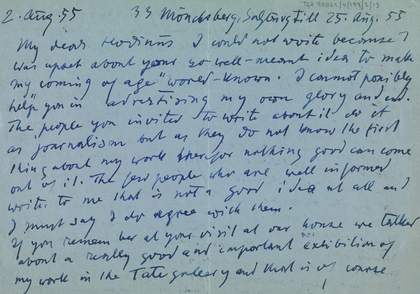 2. Aug. 55 33 Mönchsberg, Salzburg till 25. Aug. 55
TGA 20052/4/193/2/13
My dear Hodinus I could not write because I
was upset about your so well-meant idea to make
my coming of age "world-known. I cannot possibly
help you in advertising my own glory and
The people you invited to write about it do it
as journalism but as they do not know the first
thing about my work therefor nothing good can come
out of it. The few people who are well informed
write to me that is not a good idea at all and
I must say I do agree with them.
If you remember at your visit at our house we talked
about a really good and important exibition of
my work in the Tate gallery and that is of course